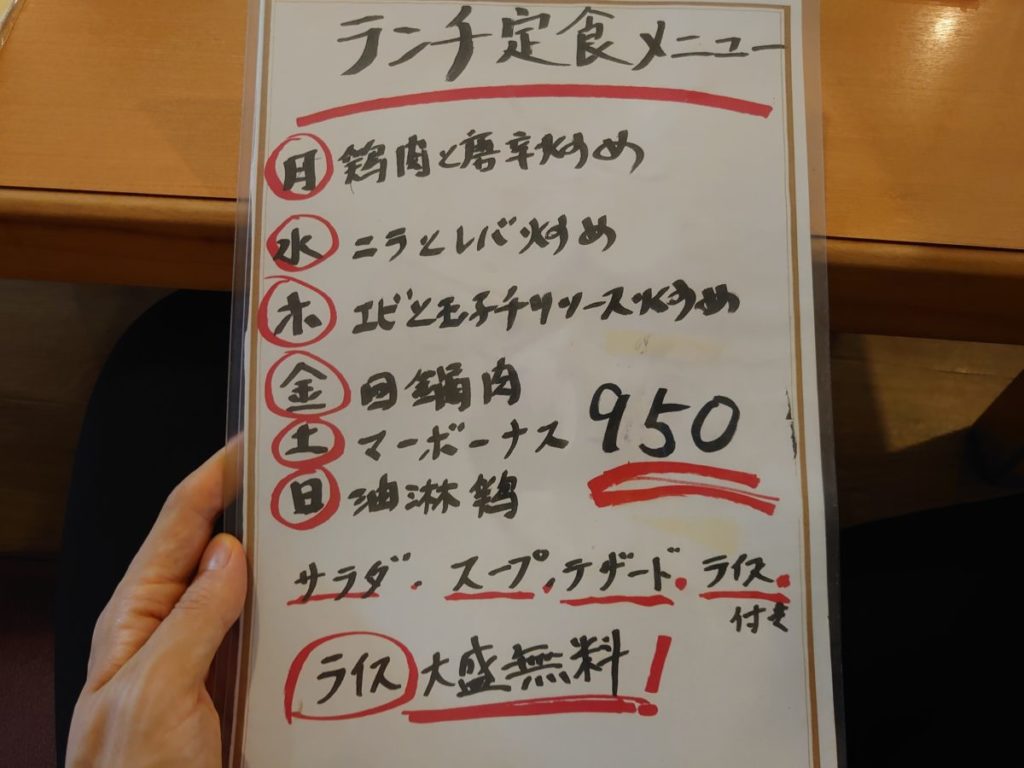 ランチ定食メニュー
月 鶏肉と唐辛炒すめ
水 ニラとレバ炒すめ
木 エビと玉子チリソース炒すめ
金 回鍋肉
土 マーボーナス
950
日 油淋鶏
サラダ・スープ・デザード・ライス・
付き
ライス大盛無料!